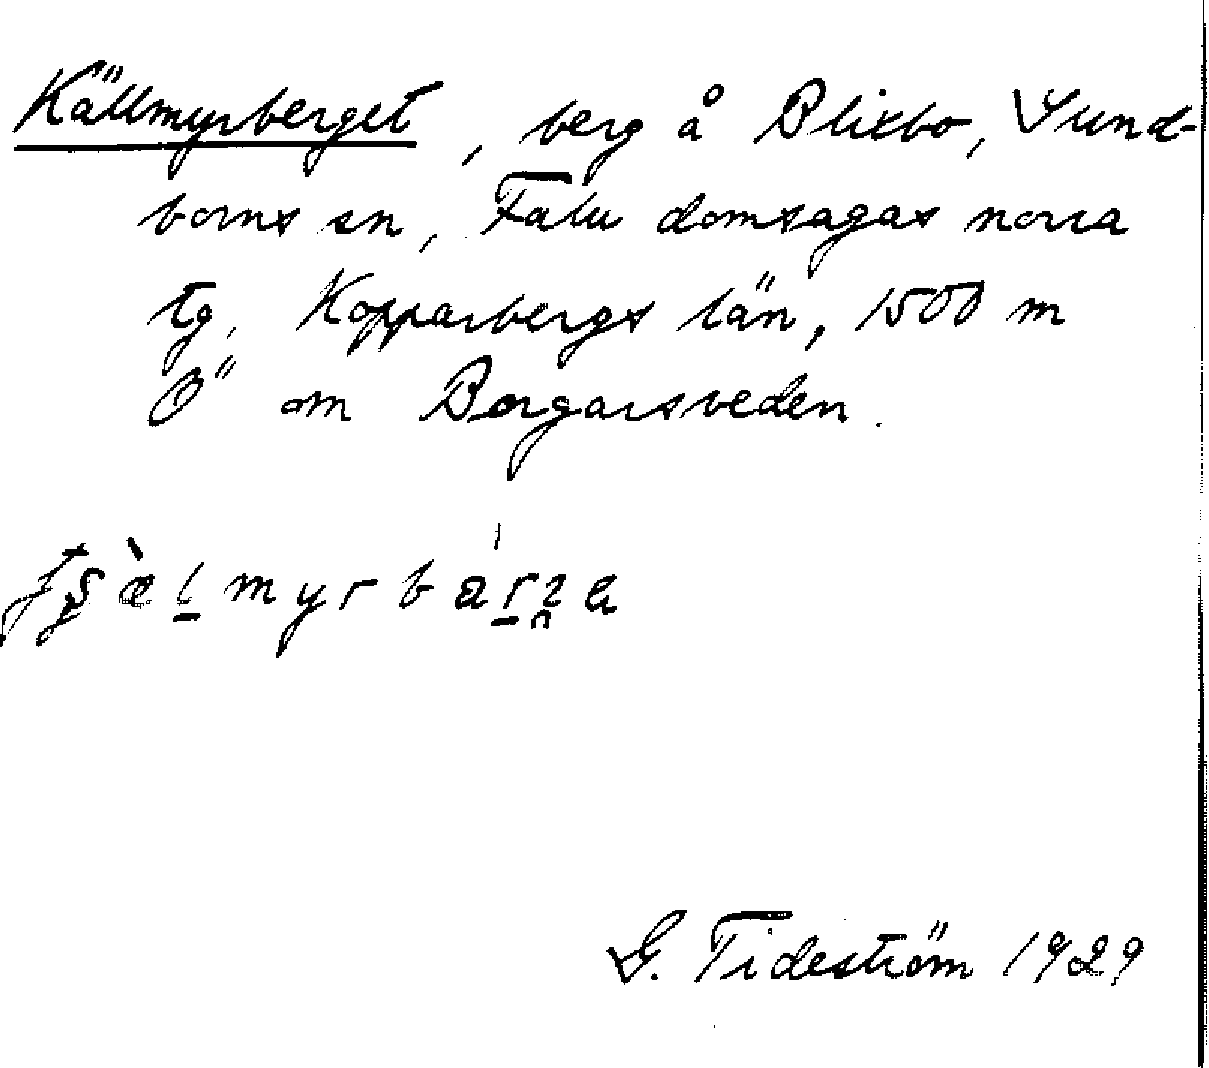 Källmyrberget, berg å Blixbo, Sund-
borns sn, Falu domsagas norra
tg, Kopparbergs län, 1500 m
Ö om Borgarsveden.
G. Tideström 1929